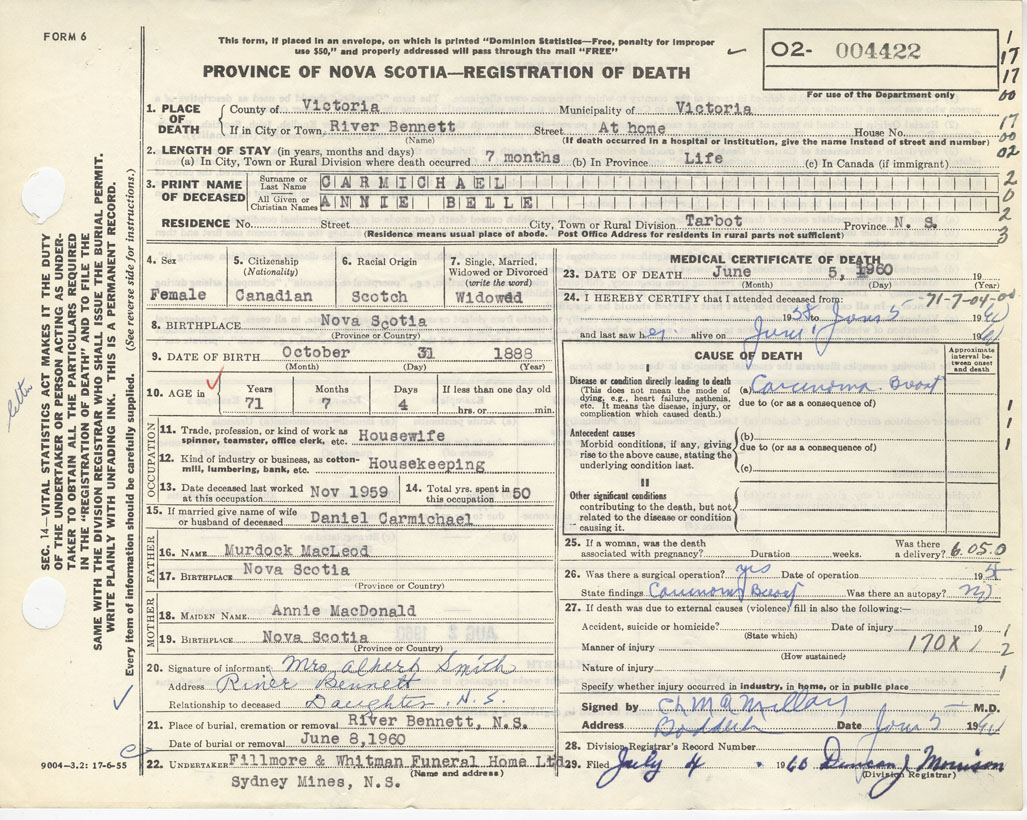 FORM 6
This form, if placed in an envelope, on which is printed "Dominion Statistics—Free, penalty for improper
use $50," and properly addressed will pass through the mail "FREE"
O2- 004422
For use of the Department only
PROVINCE OF NOVA SCOTIA—REGISTRATION OF DEATH
1. PLACE OF DEATH
County of Victoria Municipality of Victoria
If in City or Town, River Bennett Street At home House No.
(Name) (If death occurred in a hospital or institution, give the name instead of street and number)
2. LENGTH OF STAY (in years, months and days)
(a) In City, Town or Rural Division where death occurred 7 months (b) In Province Life (c) In Canada (if immigrant)
3. PRINT NAME OF DECEASED
Surname or Last Name CARMICHAEL
All Given or Christian Names ANNIE BELLE
RESIDENCE No. Street City, Town or Rural Division Tarbot Province N. S.
(Residence means usual place of abode. Post Office Address for residents in rural parts not sufficient)
4. Sex
Female
5. Citizenship (Nationality)
Canadian
6. Racial Origin
Scotch
7. Single, Married, Widowed or Divorced (write the word)
Widowed
8. BIRTHPLACE Nova Scotia
(Province or Country)
9. DATE OF BIRTH October 31 1888
(Month) (Day) (Year)
10. AGE in
Years 71
Months 7
Days 4
If less than one day old
hrs. or min.
OCCUPATION
11. Trade, profession, or kind of work as
spinner, teamster, office clerk, etc. Housewife
12. Kind of industry or business, as cotton-
mill, lumbering, bank, etc. Housekeeping
13. Date deceased last worked
at this occupation Nov 1959
14. Total yrs. spent in
this occupation 50
15. If married give name of wife
or husband of deceased Daniel Carmichael
FATHER
16. NAME Murdock MacLeod
17. BIRTHPLACE Nova Scotia
(Province or Country)
MOTHER
18. MAIDEN NAME Annie MacDonald
19. BIRTHPLACE Nova Scotia
(Province or Country)
20. Signature of informant Mrs Albert Smith
Address River Bennett
Relationship to deceased Daughter, N.S.
21. Place of burial, cremation or removal River Bennett, N.S.
Date of burial or removal June 8,1960
22. UNDERTAKER Fillmore & Whitman Funeral Home Ltd
(Name and address)
Sydney Mines, N.S.
MEDICAL CERTIFICATE OF DEATH
23. DATE OF DEATH June 5, 1960 19
(Month) (Day) (Year)
24. I HEREBY CERTIFY that I attended deceased from: -71-7-04-00
19 to June 5 19
and last saw her alive on June 19
CAUSE OF DEATH
Approximate interval between onset and death
I
Disease or condition directly leading to death
(This does not mean the mode of
dying, e.g., heart failure, asthenia,
etc. It means the disease, injury, or
complication which caused death.)
(a) Carcinoma Breast
due to (or as a consequence of)
Antecedent causes
Morbid conditions, if any, giving
rise to the above cause, stating the
underlying condition last.
(b)
due to (or as a consequence of)
(c)
II
Other significant conditions
contributing to the death, but not
related to the disease or condition
causing it.
25. If a woman, was the death
associated with pregnancy? Duration weeks. Was there
a delivery? 6.05.0
26. Was there a surgical operation? yes Date of operation 19
State findings Carcinoma Breast Was there an autopsy? no
27. If death was due to external causes (violence) fill in also the following:
Accident, suicide or homicide? Date of injury 19
(State which)
Manner of injury 170X
(How sustained)
Nature of injury
Specify whether injury occurred in industry, in home, or in public place
Signed by M.D.
Address Baddeck Date June 5 19
28. Division Registrar's Record Number
29. Filed July 4 1960 Duncan J Morrison
(Division Registrar)
SEC. 14—VITAL STATISTICS ACT MAKES IT THE DUTY
OF THE UNDERTAKER OR PERSON ACTING AS UNDER-
TAKER TO OBTAIN ALL THE PARTICULARS REQUIRED
IN THE "REGISTRATION OF DEATH" AND TO FILE THE
SAME WITH THE DIVISION REGISTRAR WHO SHALL ISSUE THE BURIAL PERMIT.
WRITE PLAINLY WITH UNFADING INK. THIS IS A PERMANENT RECORD.
Every item of information should be carefully supplied. (See reverse side for instructions.)
letter
9004—3.2: 17-6-55
1
17
17
00
17
00
02
2
0
2
3
1
1
1
1
2
1